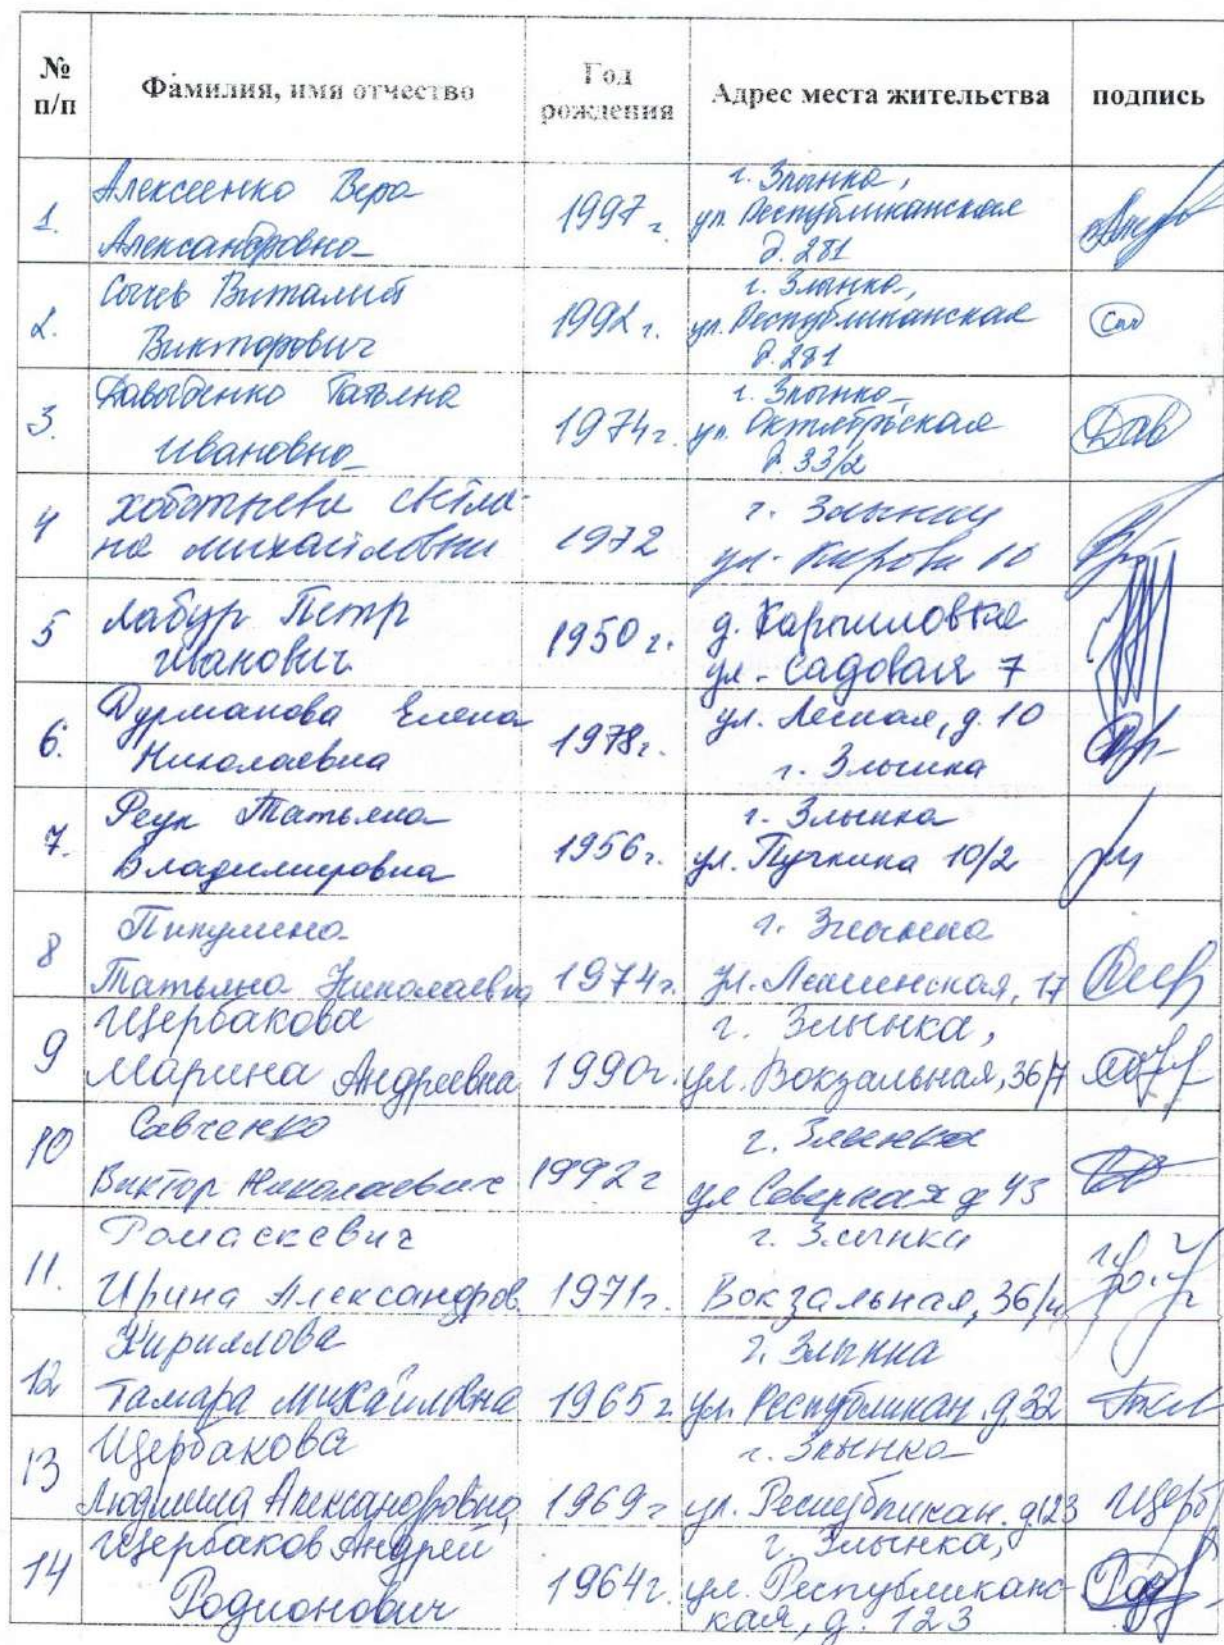 № п/п Фамилия, имя отчество Год рождения Адрес места жительства подпись
1. Алексеенко Вера Александровна 1997 г г. Злынка, ул. Республиканская д. 281
2. Сычев Виталий Викторович 1992 г. г. Злынка, ул. Республиканская д. 281
3. Давыденко Татьяна Ивановна 1974 г. г. Злынка ул. Октябрьская д. 33/2 Дав
4 Светла-на Михайловна 1972 г. Злынка ул. Кирова 10
5 Лабур Петр Иванович 1950 г. д. Карпиловка ул. Садовая 7
6. Дурманова Елена Николаевна 1978 г. ул. Лесная, д. 10 г. Злынка
7. Реук Татьяна Владимировна 1956 г. г. Злынка ул. 10/2
8 Пикулина Татьяна Николаевна 1974 г. г. Злынка ул. 17
9 Щербакова Марина Андреевна 1990 г. г. Злынка, ул. Вокзальная, 36/7
10 Савченко Виктор Николаевич 1992 г г. Злынка ул Северная д 43
11. Ромаскевич Ирина Александров. 1971 г. г. Злынка Вокзальная, 36/4
12 Кириллова Тамара Михайловна 1965 г г. Злынка ул. Республикан. д. 32
13 Щербакова Людмила Александровна 1969 г г. Злынка ул. Республикан. д 123 Щерб
14 Щербаков Андрей Родионович 1964 г. г. Злынка, ул. Республиканс-кая, д. 123